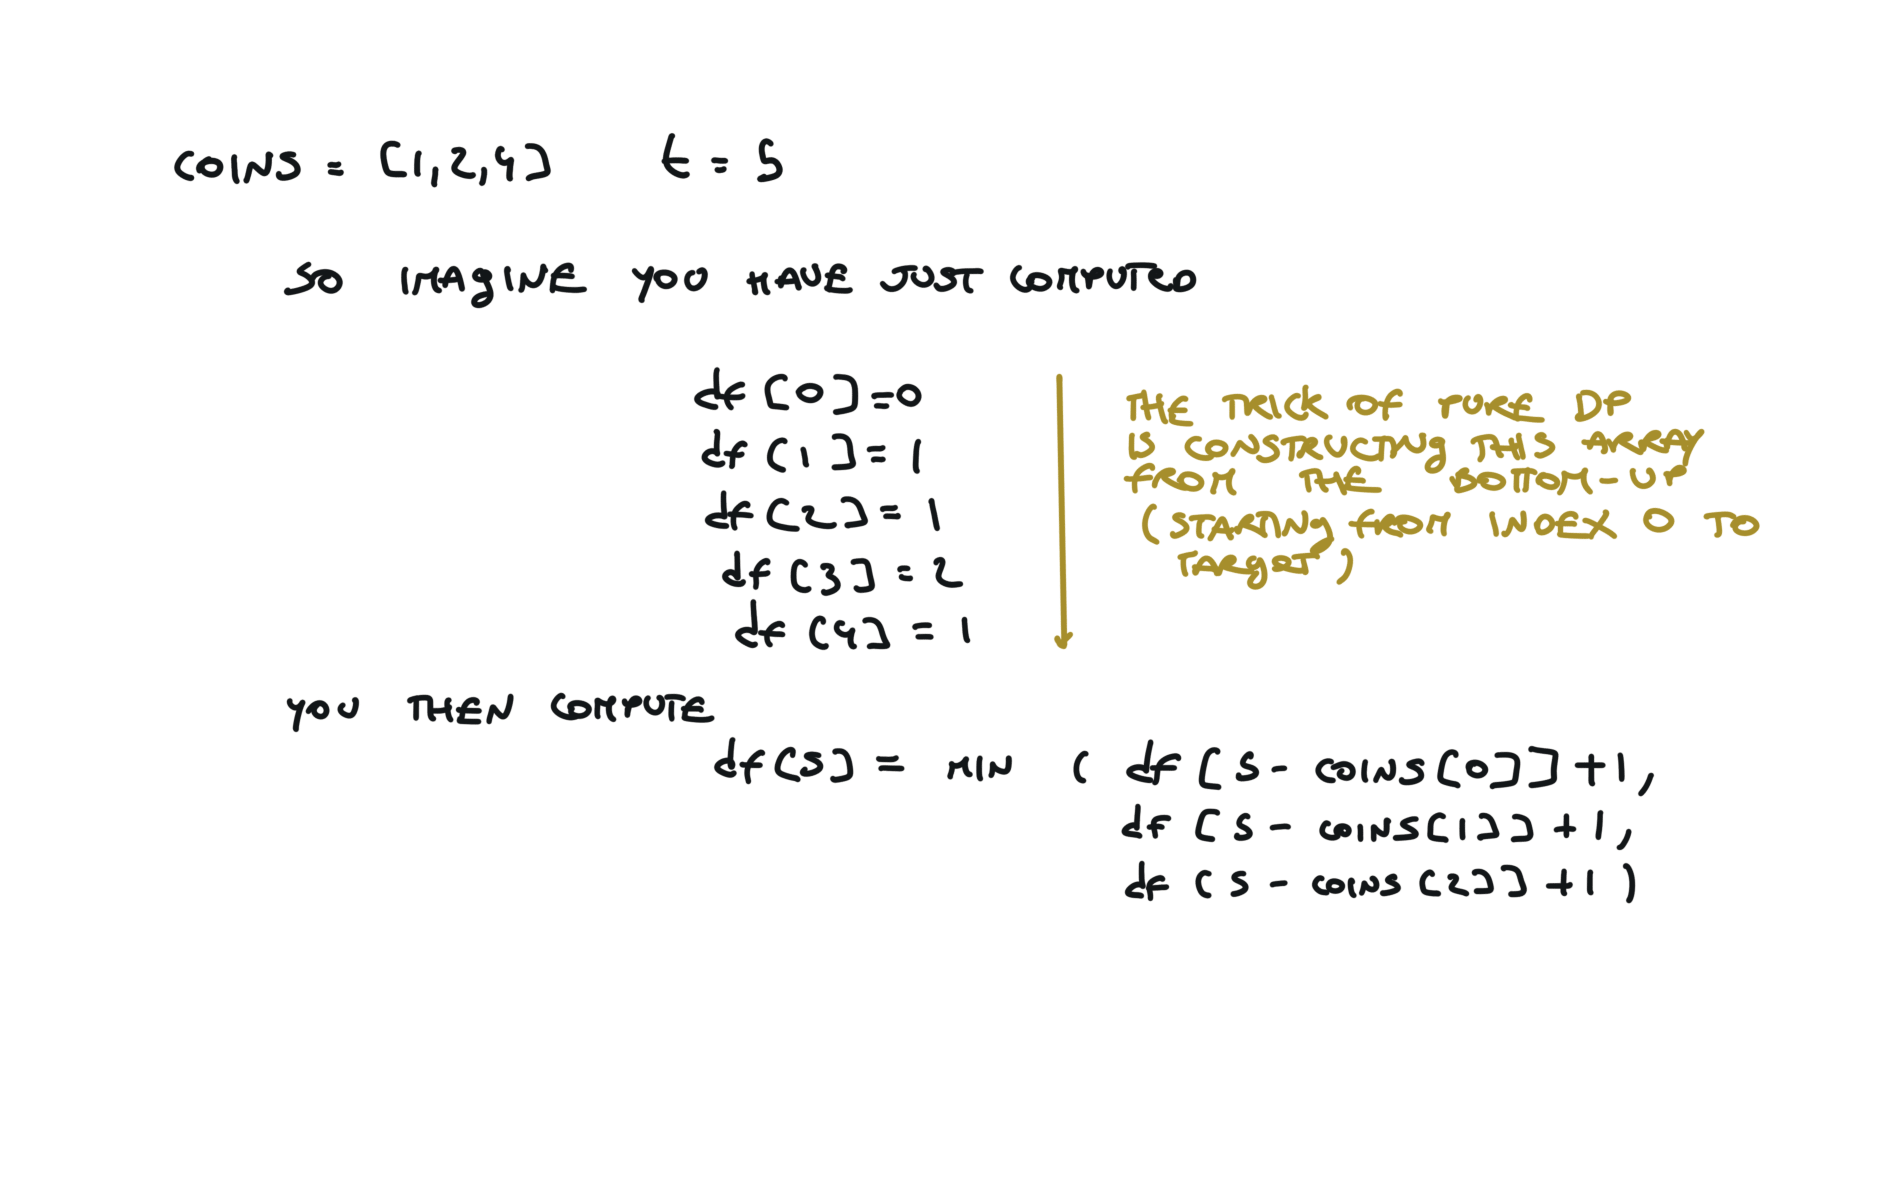 COINS = [1,2,4] t = 5
SO IMAGINE YOU HAVE JUST COMPUTED
df[0]=0
df[1]=1
df[2]=1
df[3]=2
df[4]=1
THE TRICK OF PURE DP
IS CONSTRUCTING THIS ARRAY
FROM THE BOTTOM-UP
(STARTING FROM INDEX 0 TO
TARGET)
YOU THEN COMPUTE
df[5] = MIN ( df[5 - COINS[0]] +1,
df[5 - COINS[1]] +1,
df[5 - COINS[2]] +1 )